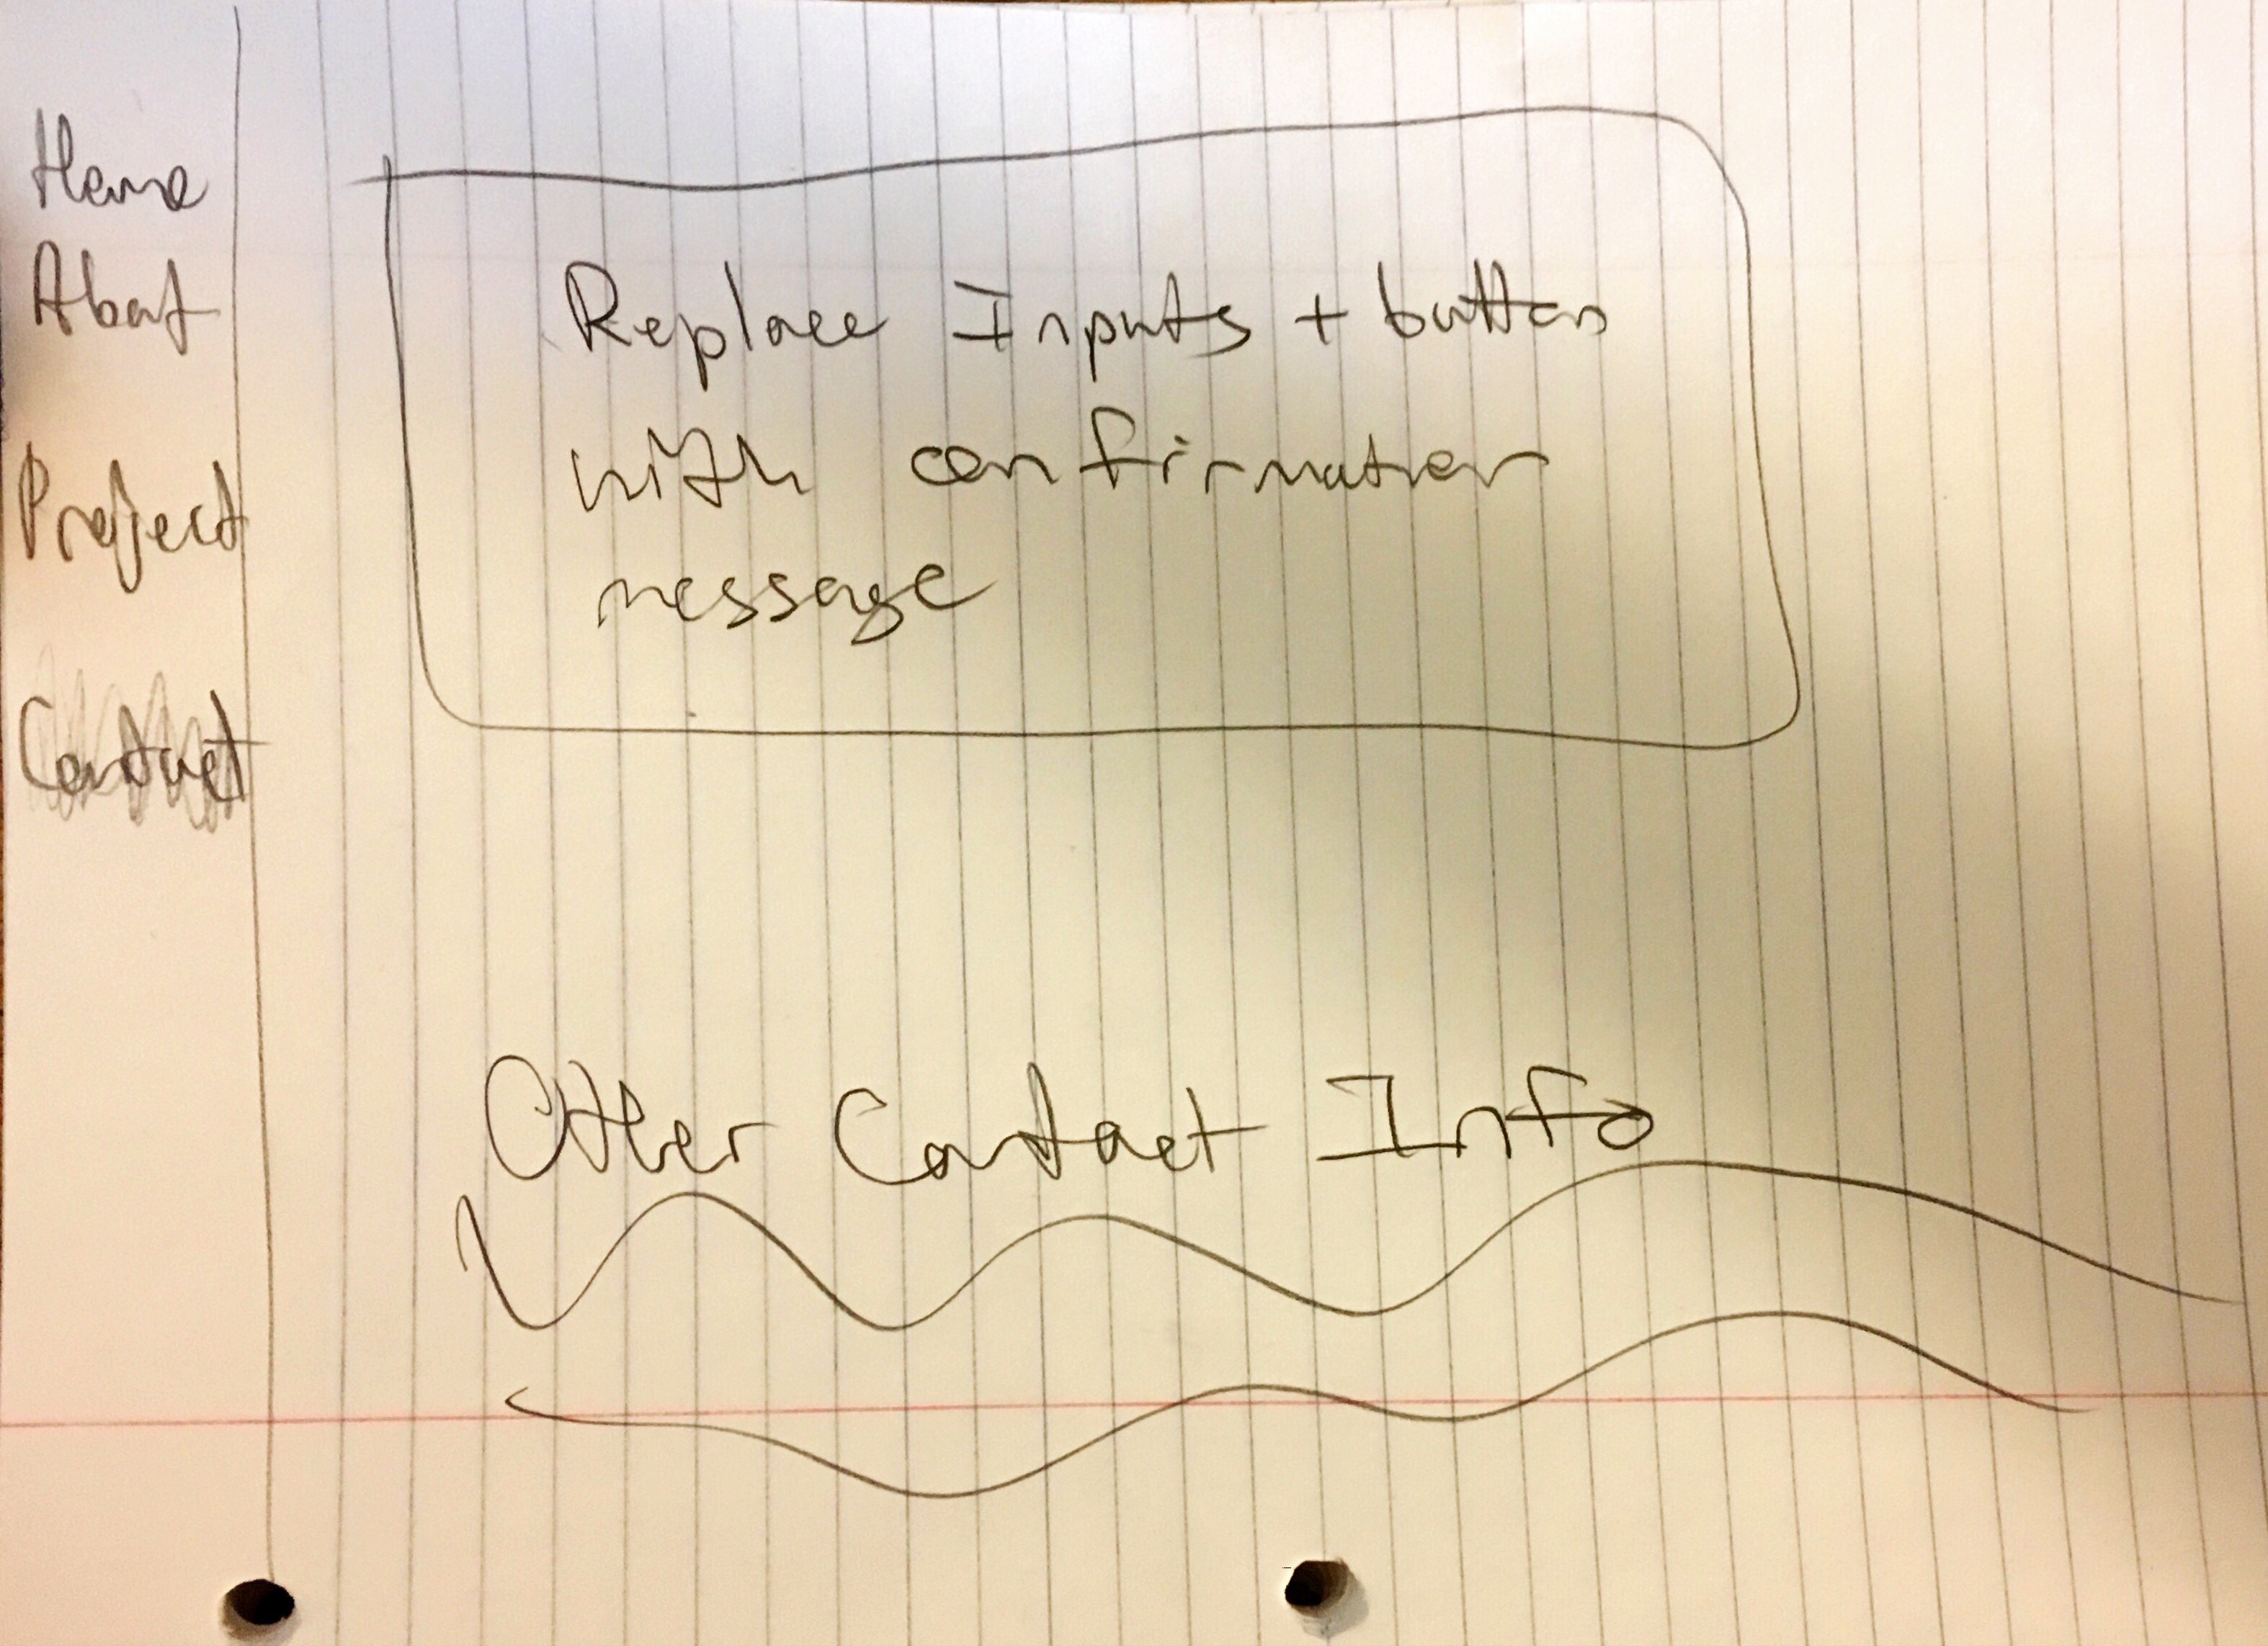 Home
About
Project
Contact
Replace Inputs + button
with confirmation
message
Other Contact Info